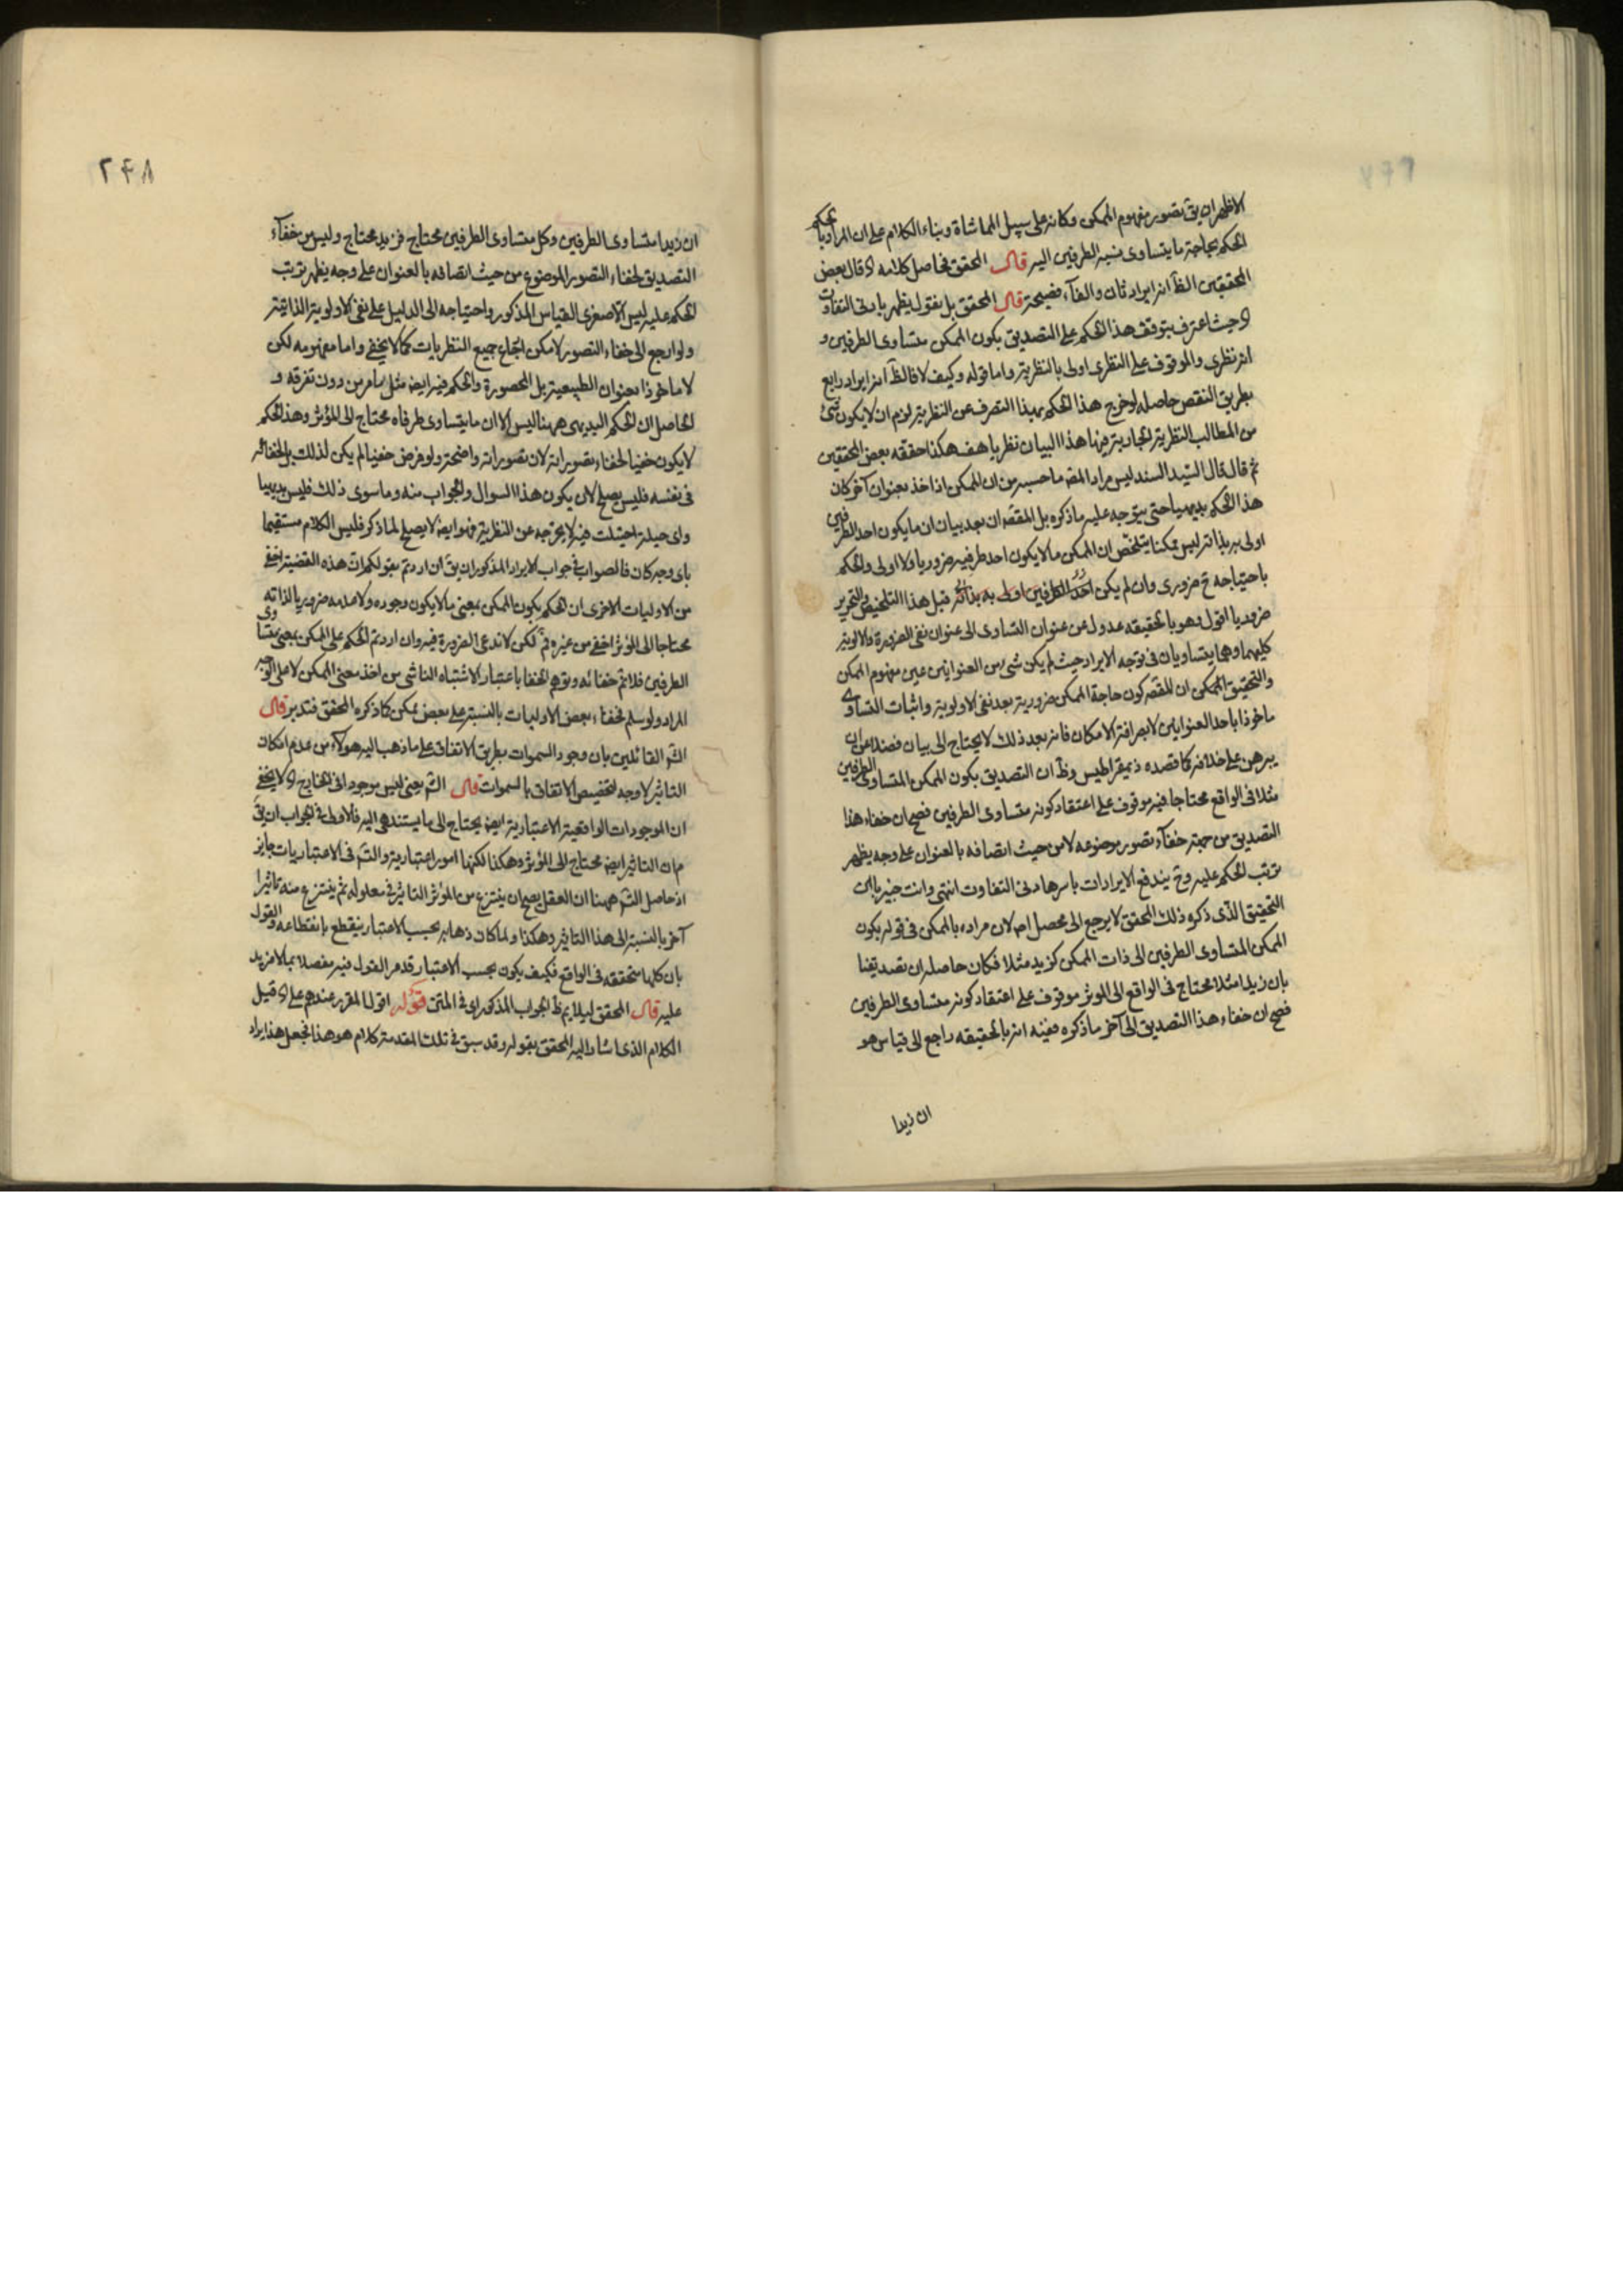 الاظهر ان يق تصور مفهوم الممكن وكانه على سبيل المماشاة وبناء الكلام على ان المراد بالحكم
الحكم بحاجة ما يتساوى نسبة الطرفين اليه قال المحقق فحاصل كلامه اه قال بعض
المحققين الظ انه ايراد ثان والفاء فصيحة قال المحقق بل نقول يظهر بادنى التفاوت
اه حيث اعترف بتوقف هذا الحكم على التصديق بكون الممكن متساوى الطرفين و
انه نظرى والموقوف على النظرى اولى بالنظرية واما قوله وكيف لا فالظ انه ايراد رابع
بطريق النقض حاصله لو خرج هذا الحكم بهذا التصرف عن النظرية لزم ان لا يكون شئ
من المطالب النظرية الجارية فيها هذا البيان نظريا هف هكذا حققه بعض المحققين
ثم قال قال السيد السند ليس مراد المض ما حسبه من ان الممكن اذا اخذ بعنوان آخر كان
هذا الحكم بديهيا حتى يتوجه عليه ما ذكره بل المقصه ان بعد بيان ان ما يكون احد الطرفين
اولى به بذاته ليس ممكنا يتلخص ان الممكن ما لا يكون احد طرفيه ضروريا ولا اولى والحكم
باحتياجه ح ضرورى وان لم يكن احد الطرفين اولى به بذاته قبل هذا التلخيص والتحرير
ضروريا اقول وهو بالحقيقه عدول عن عنوان التساوى الى عنوان نفى الضرورة والاولوية
كليهما وهما يتساويان فى توجه الايراد حيث لم يكن شئ من العنوانين عين مفهوم الممكن
والتحقيق الممكن ان المقصه كون حاجة الممكن ضرورية بعد نفى الاولوية واثبات التساوى
ماخوذا باحد العنوانين لا بصرافة الامكان فانه بعد ذلك لا يحتاج الى بيان فضلا عن ان
يبرهن على خلافه كما قصده ذيمقراطيس وظ ان التصديق بكون الممكن المتساوى الطرفين
مثلا فى الواقع محتاجا فيه موقوف على اعتقاد كونه متساوى الطرفين فصح ان خفاء هذا
التصديق من جهة خفاء تصور موضوعه لا من حيث اتصافه بالعنوان على وجه يظهر
ترتب الحكم عليه وح يندفع الايرادات باسرها دنى التفاوت انتهى وانت خبير بان
التحقيق الذى ذكره ذلك المحقق لا يرجع الى محصل اصلا لان مراده بالممكن فى قوله بكون
الممكن المتساوى الطرفين الى ذات الممكن كزيد مثلا فكان حاصله ان تصديقنا
بان زيدا مثلا محتاج فى الواقع الى المؤثر موقوف على اعتقاد كونه متساوى الطرفين
فصح ان خفاء هذا التصديق الى آخر ما ذكره ففيه انه بالحقيقه راجع الى قياس هو
ان زيدا
٢۴٨
ان زيدا متساوى الطرفين وكل متساوى الطرفين محتاج فزيد محتاج وليس من خفاء
التصديق لخفاء التصور الموضوع من حيث اتصافه بالعنوان على وجه يظهر ترتب
الحكم عليه ليس الا صغرى القياس المذكور واحتياجه الى الدليل على نفى الاولوية الذاتية
ولو ارجع الى خفاء التصور لامكن ارجاع جميع النظريات كما لا يخفى واما مفهومه لكن
لا ماخوذا بعنوان الطبيعية بل المحصورة والحكم فيه ايض مثل ما مر من دون تفرقه و
الحاصل ان الحكم البديهى ههنا ليس الا ان ما يتساوى طرفاه محتاج الى المؤثر وهذا الحكم
لا يكون خفيا لخفاء تصوراته لان تصوراته واضحة ولو فرض خفيا لم يكن لذلك بل لخفائه
فى نفسه فليس يصلح لان يكون هذا السوال والجواب منه وما سوى ذلك فليس بديهيا
واى حيلة احتيلت فيه لا يخرجه عن النظرية فهو ايض لا يصلح لما ذكر فليس الكلام مستقيما
باى وجه كان فالصواب فى جواب الايراد المذكور ان يق ان اردتم بقولكم ان هذه القضية اخفى
من الاوليات الاخرى ان الحكم بكون الممكن بمعنى ما لا يكون وجوده ولا عدمه ضروريا لذاته
محتاجا الى المؤثر اخفى من غيره فم لكن لا ندعى الضرورة فيه وان اردتم الحكم على الممكن بمعنى متساوى
الطرفين فلا نم خفائه وتوهم الخفا باعتبار الاشتباه الناشى من اخذ معنى الممكن لا على الوجه
المراد ولو سلم فخفاء بعض الاوليات بالنسبة على بعض ممكن كما ذكره المحقق فتدبر قال
الش القائلين بان وجود السموات بطريق الاتفاق على ما ذهب اليه هولاء من عدم امكان
التاثير لا وجه لتخصيص الاتفاق بالسموات قال الش يعنى ليس موجودا فى الخارج اه لا يخفى
ان الموجودات الواقعية الاعتبارية ايض يحتاج الى ما يستند هى اليه فالاولى فى الجواب ان يق
م ان التاثير ايض محتاج الى المؤثر وهكذا لكنها امور اعتبارية والتس فى الاعتباريات جايز
اذ حاصل التس ههنا ان العقل يصح ان ينتزع من المؤثر التاثير فى معلوله ثم ينتزع منه تاثيرا
آخر بالنسبة الى هذا التاثير وهكذا ولما كان ذهابه بحسب الاعتبار ينقطع بانقطاعه والقول
بان كلها متحققه فى الواقع فكيف يكون بحسب الاعتبار قد مر القول فيه مفصلا بما لا مزيد
عليه قال المحقق ليلايم ظ الجواب المذكور اى فى المتن قوله اقول المقرر عندهم على اه قيل
الكلام الذى اشار اليه المحقق بقوله وقد سبق فى تلك المقدمة كلام هو هذا فجعل هذا ايراد